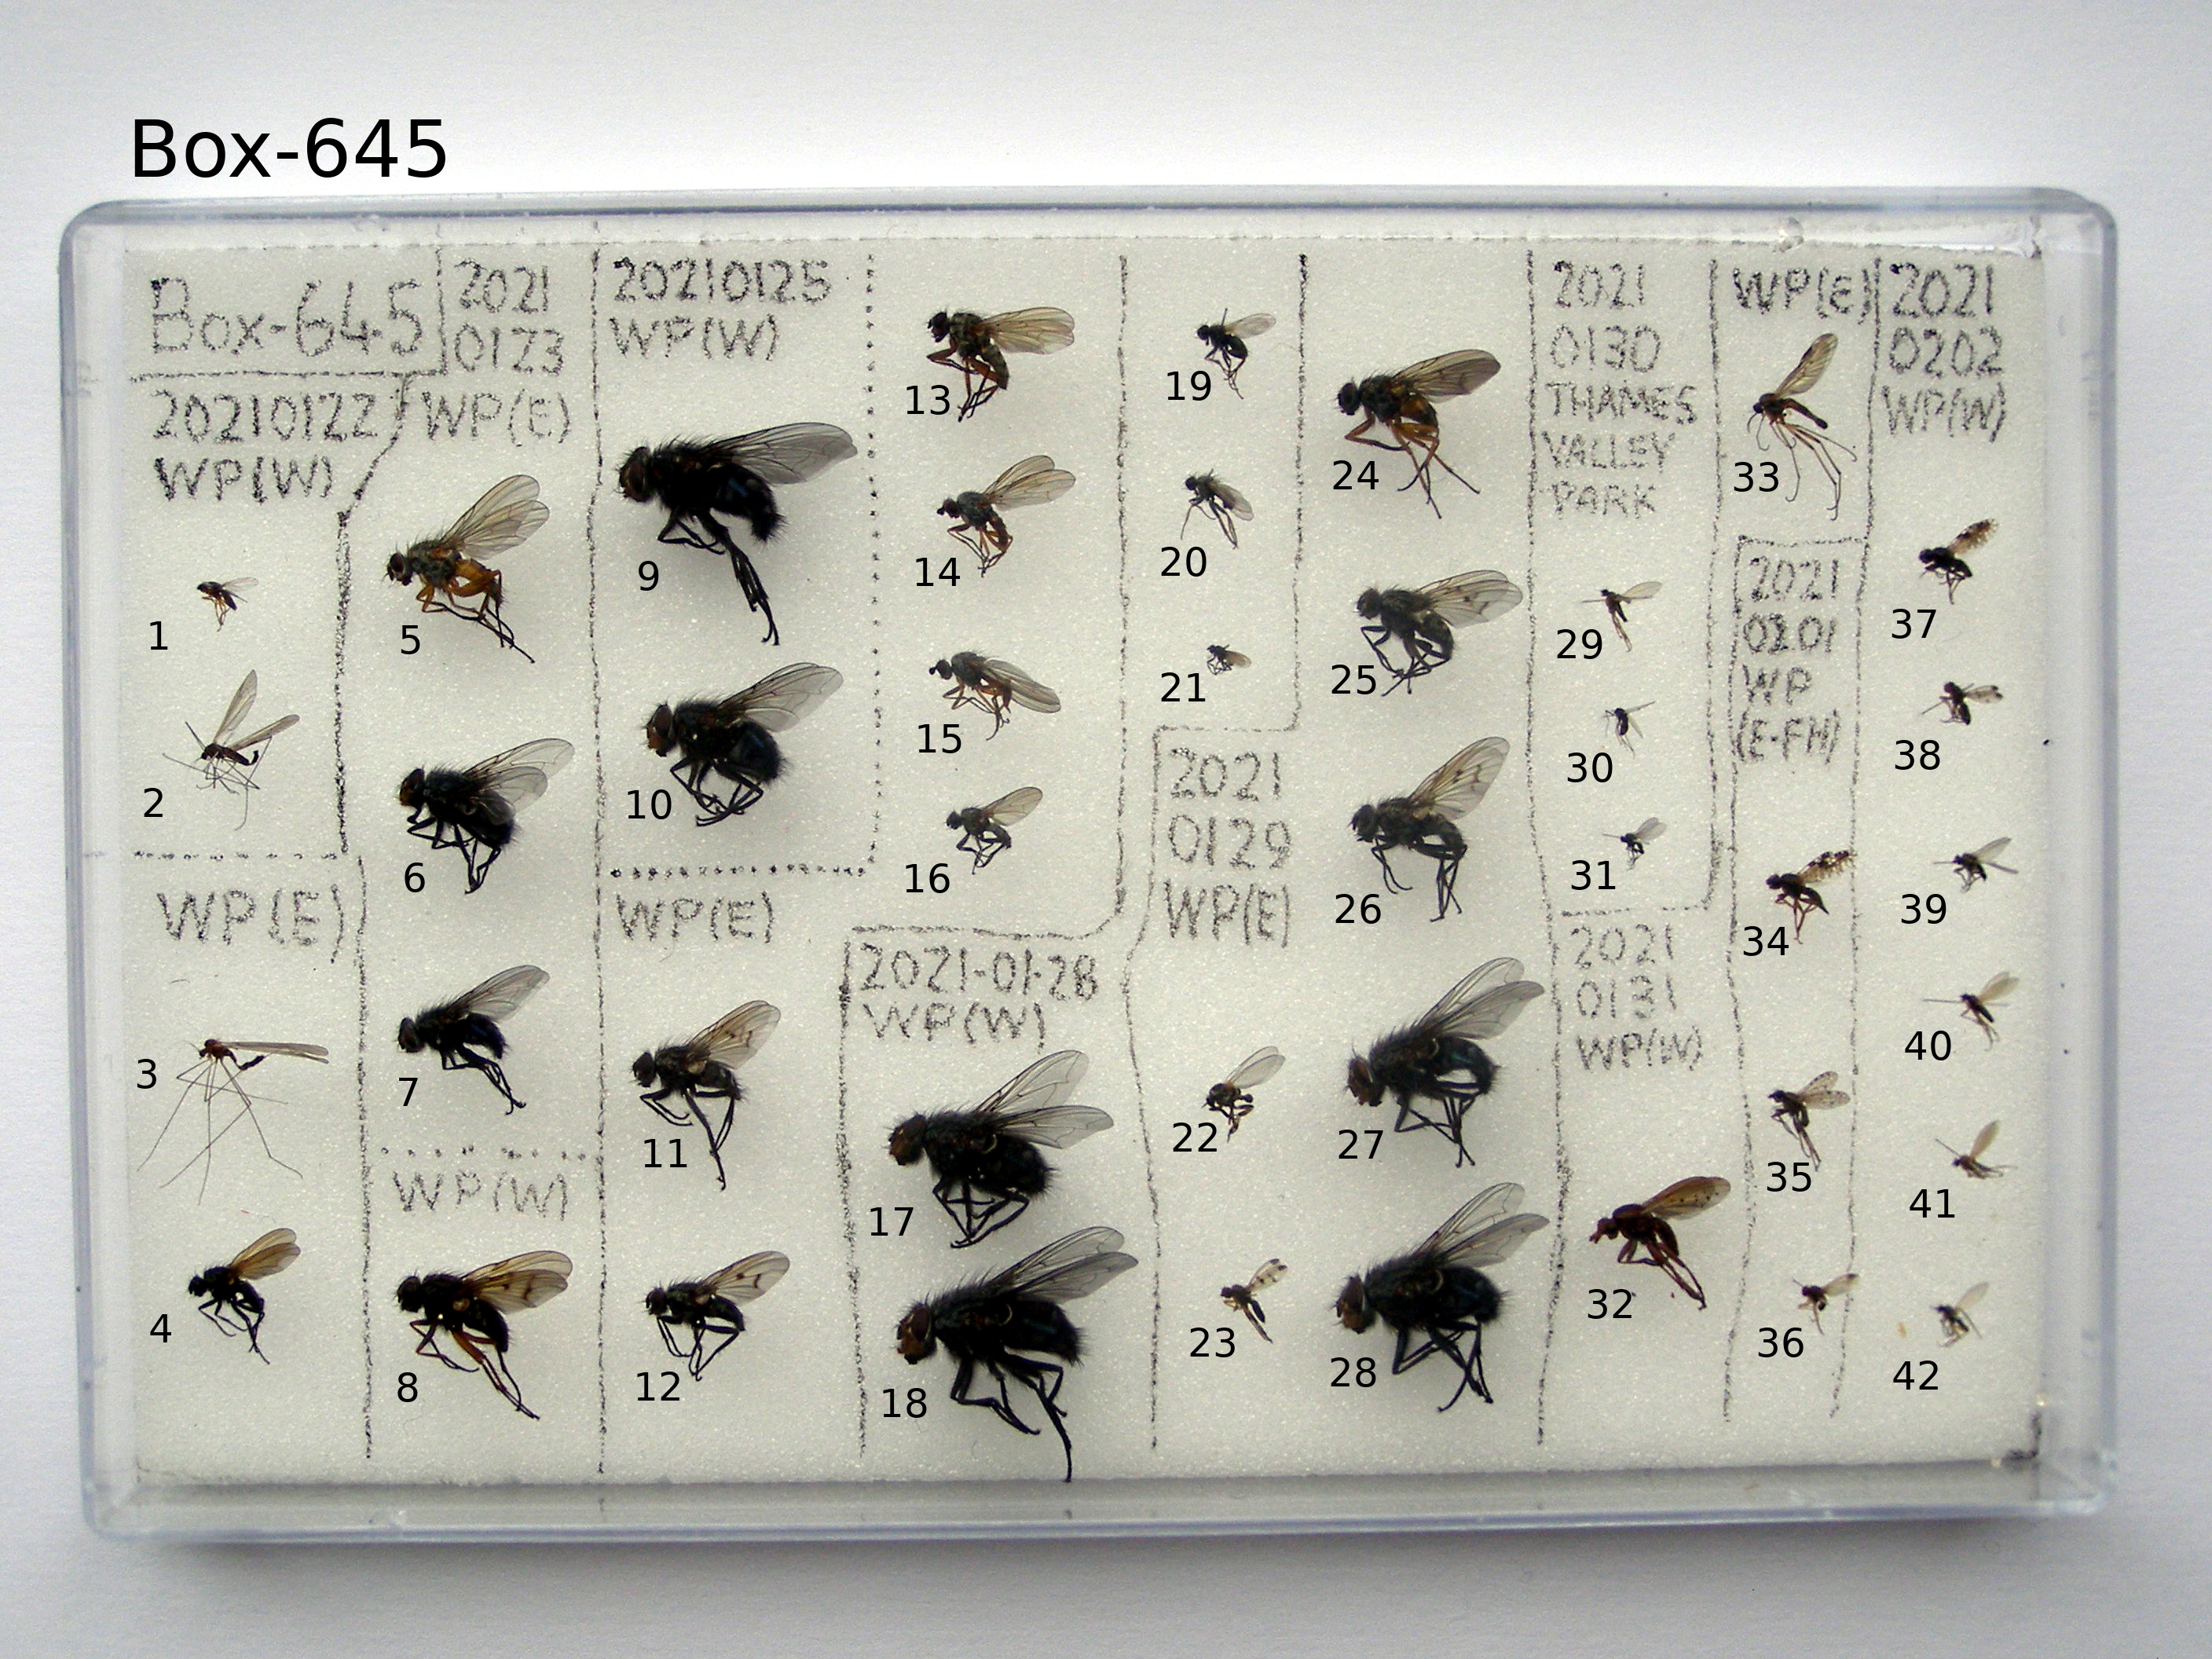 Box-645
Box-645
20210122
WP(W)
1
2
WP(E)
3
4
2021
0123
WP(E)
5
6
7
WP(W)
8
20210125
WP(W)
9
10
WP(E)
11
12
13
14
15
16
2021-01-28
WP(W)
17
18
19
20
21
2021
0129
WP(E)
22
23
24
25
26
27
28
2021
0130
THAMES
VALLEY
PARK
29
30
31
2021
0131
WP(W)
32
WP(E)
33
2021
0201
WP
(E-FH)
34
35
36
2021
0202
WP(W)
37
38
39
40
41
42